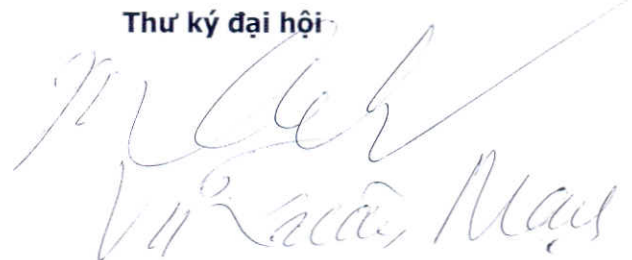 Thư ký đại hội
Vũ Xuân Mạnh